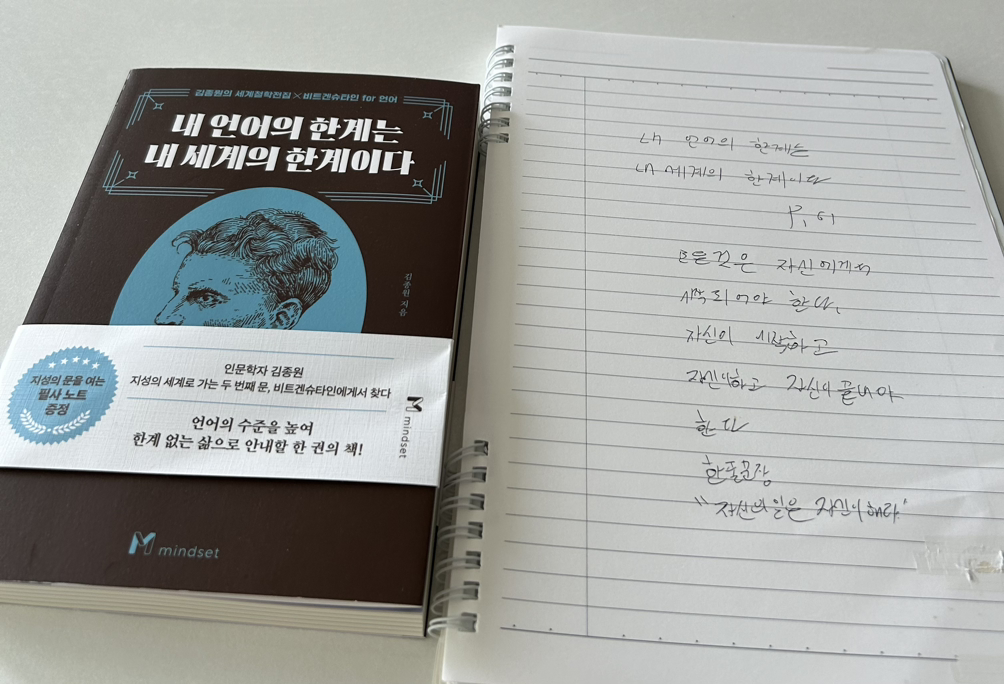 김종원의 세계철학전집×비트겐슈타인 for 언어
내 언어의 한계는
내 세계의 한계이다
김종원 지음
지성의 문을 여는
필사 노트
증정
인문학자 김종원
지성의 세계로 가는 두 번째 문, 비트겐슈타인에게서 찾다
언어의 수준을 높여
한계 없는 삶으로 안내할 한 권의 책!
mindset
M mindset
내 언어의 한계는
내 세계의 한계이다
P, 61
모든것은 자신에게서
시작되어야 한다,
자신이 시작하고
자신이하고 자신이 끝내야
한다
한줄문장
"자신의 일은 자신이 해라"